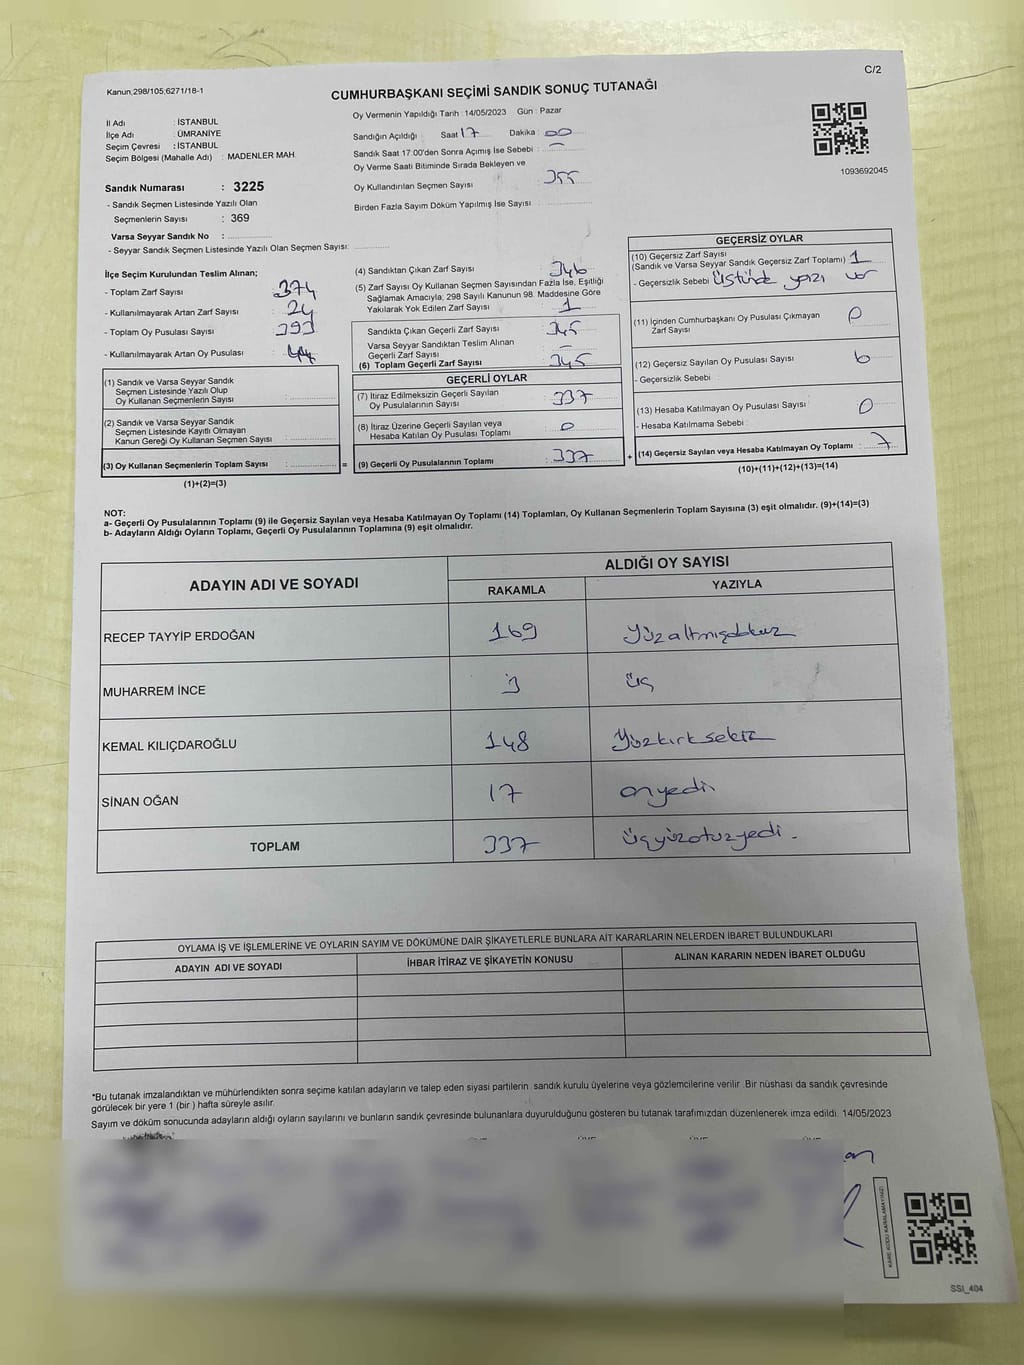 C/2
Kanun,298/105,6271/18-1
CUMHURBAŞKANI SEÇİMİ SANDIK SONUÇ TUTANAĞI
İl Adı : İSTANBUL
İlçe Adı : ÜMRANİYE
Seçim Çevresi : İSTANBUL
Seçim Bölgesi (Mahalle Adı) : MADENLER MAH.
Sandık Numarası : 3225
- Sandık Seçmen Listesinde Yazılı Olan
Seçmenlerin Sayısı : 369
Varsa Seyyar Sandık No :
- Seyyar Sandık Seçmen Listesinde Yazılı Olan Seçmen Sayısı:
Oy Vermenin Yapıldığı Tarih : 14/05/2023 Gün : Pazar
Sandığın Açıldığı Saat 17 Dakika : 00
Sandık Saat 17.00'den Sonra Açımış İse Sebebi : -
Oy Verme Saati Bitiminde Sırada Bekleyen ve
Oy Kullandırılan Seçmen Sayısı : 355
Birden Fazla Sayım Döküm Yapılmış İse Sayısı :
1093692045
İlçe Seçim Kurulundan Teslim Alınan;
- Toplam Zarf Sayısı : 374
- Kullanılmayarak Artan Zarf Sayısı : 24
- Toplam Oy Pusulası Sayısı : 393
- Kullanılmayarak Artan Oy Pusulası : 44
(1) Sandık ve Varsa Seyyar Sandık
Seçmen Listesinde Yazılı Olup
Oy Kullanan Seçmenlerin Sayısı :
(2) Sandık ve Varsa Seyyar Sandık
Seçmen Listesinde Kayıtlı Olmayan
Kanun Gereği Oy Kullanan Seçmen Sayısı :
(3) Oy Kullanan Seçmenlerin Toplam Sayısı :
(1)+(2)=(3)
(4) Sandıktan Çıkan Zarf Sayısı : 346
(5) Zarf Sayısı Oy Kullanan Seçmen Sayısından Fazla İse, Eşitliği
Sağlamak Amacıyla; 298 Sayılı Kanunun 98. Maddesine Göre
Yakılarak Yok Edilen Zarf Sayısı : 1
Sandıkta Çıkan Geçerli Zarf Sayısı : 345
Varsa Seyyar Sandıktan Teslim Alınan
Geçerli Zarf Sayısı : -
(6) Toplam Geçerli Zarf Sayısı : 345
GEÇERLİ OYLAR
(7) İtiraz Edilmeksizin Geçerli Sayılan
Oy Pusulalarının Sayısı : 337
(8) İtiraz Üzerine Geçerli Sayılan veya
Hesaba Katılan Oy Pusulası Toplamı : 0
= (9) Geçerli Oy Pusulalarının Toplamı : 337
GEÇERSİZ OYLAR
(10) Geçersiz Zarf Sayısı
(Sandık ve Varsa Seyyar Sandık Geçersiz Zarf Toplamı) : 1
- Geçersizlik Sebebi : Üstünde yazı var
(11) İçinden Cumhurbaşkanı Oy Pusulası Çıkmayan
Zarf Sayısı : 0
(12) Geçersiz Sayılan Oy Pusulası Sayısı : 6
- Geçersizlik Sebebi :
(13) Hesaba Katılmayan Oy Pusulası Sayısı : 0
- Hesaba Katılmama Sebebi :
+ (14) Geçersiz Sayılan veya Hesaba Katılmayan Oy Toplamı : 7
(10)+(11)+(12)+(13)=(14)
NOT:
a- Geçerli Oy Pusulalarının Toplamı (9) ile Geçersiz Sayılan veya Hesaba Katılmayan Oy Toplamı (14) Toplamları, Oy Kullanan Seçmenlerin Toplam Sayısına (3) eşit olmalıdır. (9)+(14)=(3)
b- Adayların Aldığı Oyların Toplamı, Geçerli Oy Pusulalarının Toplamına (9) eşit olmalıdır.
ADAYIN ADI VE SOYADI ALDIĞI OY SAYISI
RAKAMLA YAZIYLA
RECEP TAYYİP ERDOĞAN 169 Yüzaltmışdokuz
MUHARREM İNCE 3 üç
KEMAL KILIÇDAROĞLU 148 Yüzkırksekiz
SİNAN OĞAN 17 onyedi
TOPLAM 337 üçyüzotuzyedi.
OYLAMA İŞ VE İŞLEMLERİNE VE OYLARIN SAYIM VE DÖKÜMÜNE DAİR ŞİKAYETLERLE BUNLARA AİT KARARLARIN NELERDEN İBARET BULUNDUKLARI
ADAYIN ADI VE SOYADI İHBAR İTİRAZ VE ŞİKAYETİN KONUSU ALINAN KARARIN NEDEN İBARET OLDUĞU
*Bu tutanak imzalandıktan ve mühürlendikten sonra seçime katılan adayların ve talep eden siyasi partilerin sandık kurulu üyelerine veya gözlemcilerine verilir .Bir nüshası da sandık çevresinde
görülecek bir yere 1 (bir ) hafta süreyle asılır.
Sayım ve döküm sonucunda adayların aldığı oyların sayılarını ve bunların sandık çevresinde bulunanlara duyurulduğunu gösteren bu tutanak tarafımızdan düzenlenerek imza edildi. 14/05/2023
KARE KODU KARALAMAYINIZ!
SSI_404